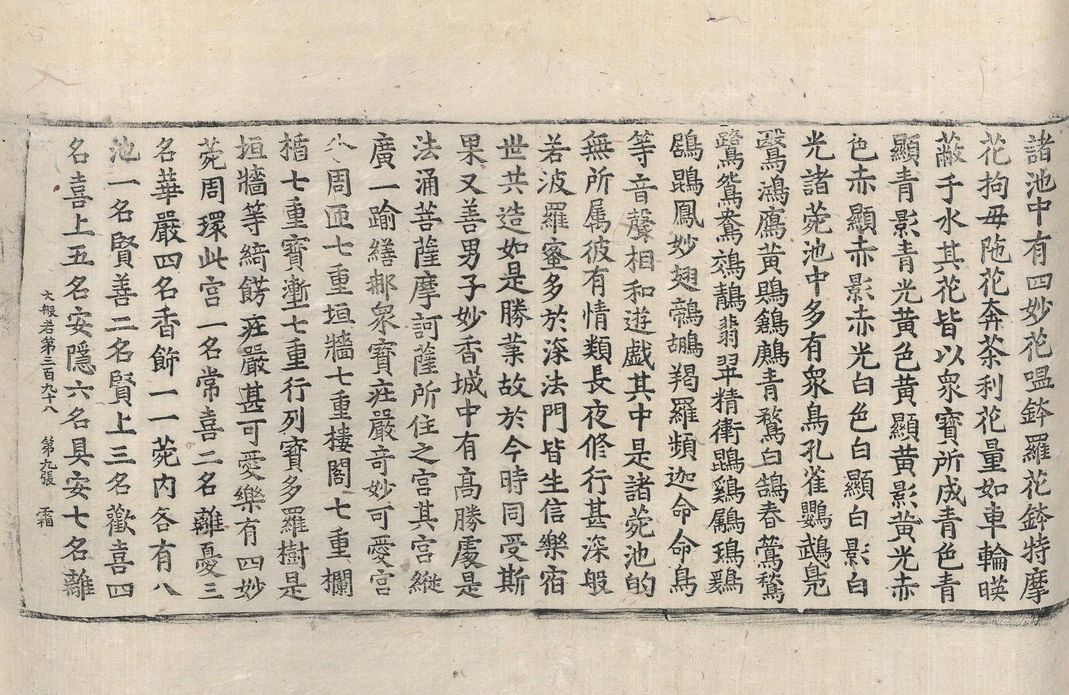 諸池中有四妙花嗢鉢羅花鉢特摩
花拘毋陁花奔茶利花量如車輪暎
蔽于水其花皆以衆寶所成青色青
顯青影青光黃色黃顯黃影黃光赤
色赤顯赤影赤光白色白顯白影白
光諸苑池中多有衆鳥孔雀鸚鵡鳧
鷖鴻鴈黃鵙鶬鶊青鶩白鵠春鶯鶖
鷺鴛鴦鵁鶄翡翠精衛鵾鷄鸀瑦鶢
鶋鵾鳳妙翅鶙鶘羯羅頻迦命命鳥
等音聲相和遊戲其中是諸苑池的
無所属彼有情類長夜修行甚深般
若波羅蜜多於深法門皆生信樂宿
世共造如是勝業故於今時同受斯
果又善男子妙香城中有高勝處是
法涌菩薩摩訶薩所住之宮其宮縱
廣一踰繕那衆寶莊嚴奇妙可愛宮
外周匝七重垣牆七重樓閣七重欄
楯七重寶塹七重行列寶多羅樹是
垣牆等綺飾莊嚴甚可愛樂有四妙
苑周環此宮一名常喜二名離憂三
名華嚴四名香飾一一苑內各有八
池一名賢善二名賢上三名歡喜四
大般若第三百九十八 第九張 霜
名喜上五名安隱六名具安七名離